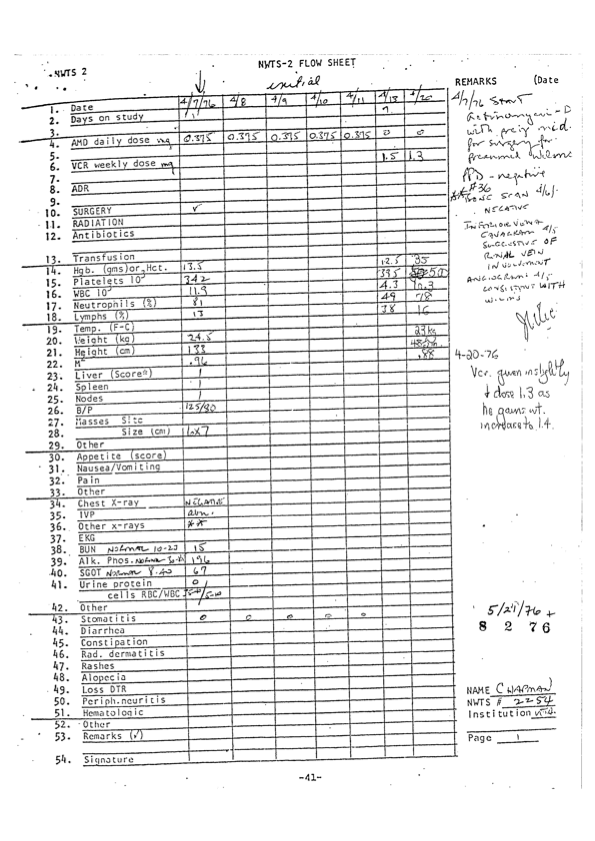 NWTS-2 FLOW SHEET
NWTS 2
initial
REMARKS (Date
1. Date 4/7/76 4/8 4/9 4/10 4/11 4/13 4/20
2. Days on study 1 7
3.
4. AMD daily dose mg 0.375 0.375 0.375 0.375 0.375 0 0
5.
6. VCR weekly dose mg 1.5 1.3
7.
8. ADR
9.
10. SURGERY ✓
11. RADIATION
12. Antibiotics
13. Transfusion
14. Hgb. (gms) or Hct. 13.5 12.5 35
15. Platelets 10³ 342 395
16. WBC 10³ 11.9 4.3
17. Neutrophils (%) 81 49 78
18. Lymphs (%) 13 38 16
19. Temp. (F-C)
20. Weight (kg) 24.5 23 kg
21. Height (cm) 133
22. M² .96 .88
23. Liver (Score*)
24. Spleen
25. Nodes
26. B/P 125/90
27. Masses Site
28. Size (cm) 16x7
29. Other
30. Appetite (score)
31. Nausea/Vomiting
32. Pain
33. Other
34. Chest X-ray NEGATIVE
35. IVP abn.
36. Other x-rays **
37. EKG
38. BUN NORMAL 10-23 15
39. Alk. Phos. 196
40. SGOT NORMAL 8-40 67
41. Urine protein 0
cells RBC/WBC
42. Other
43. Stomatitis 0 0 0 0 0
44. Diarrhea
45. Constipation
46. Rad. dermatitis
47. Rashes
48. Alopecia
49. Loss DTR
50. Periph.neuritis
51. Hematologic
52. Other
53. Remarks (✓)
54. Signature
4/7/76 Start
Actinomycin-D
with
for surgery for
presumed Wilms
PPD - negative
**#36
BONE SCAN 4/6/.
NEGATIVE
INFERIOR VENA
CAVAGRAM 4/5
SUGGESTIVE OF
RENAL VEIN
INVOLVEMENT
ANGIOGRAM 4/5
CONSISTENT WITH
WILMS
4-20-76
Vcr. given in slightly
↓ dose 1.3 as
he gains wt.
increase to 1.4.
5/24/76 +
8 2 76
NAME CHAPMAN
NWTS # 2254
Institution
Page 1
-41-